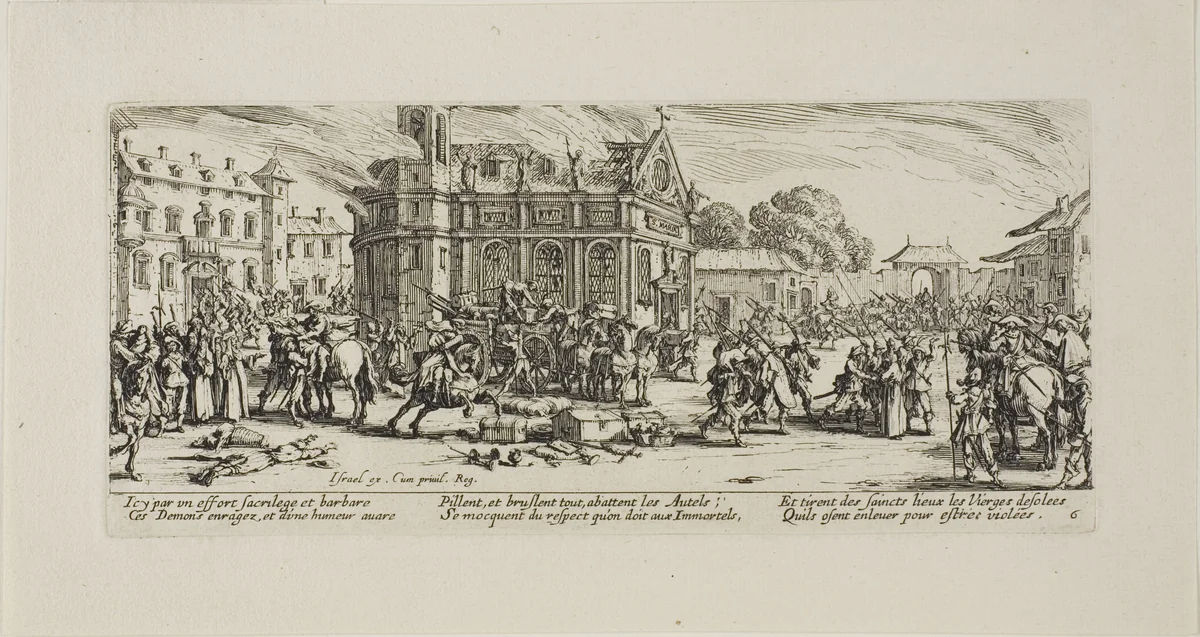 Israel ex. Cum privil. Reg.
Icy par vn effort sacrilege et barbare
Ces Demons enragez, et d'vne humeur auare
Pillent, et bruslent tout, abattent les Autels ;
Se mocquent du respect qu'on doit aux Immortels,
Et tirent des saincts lieux les Vierges desolees
Quils osent enleuer pour estre violées.
6